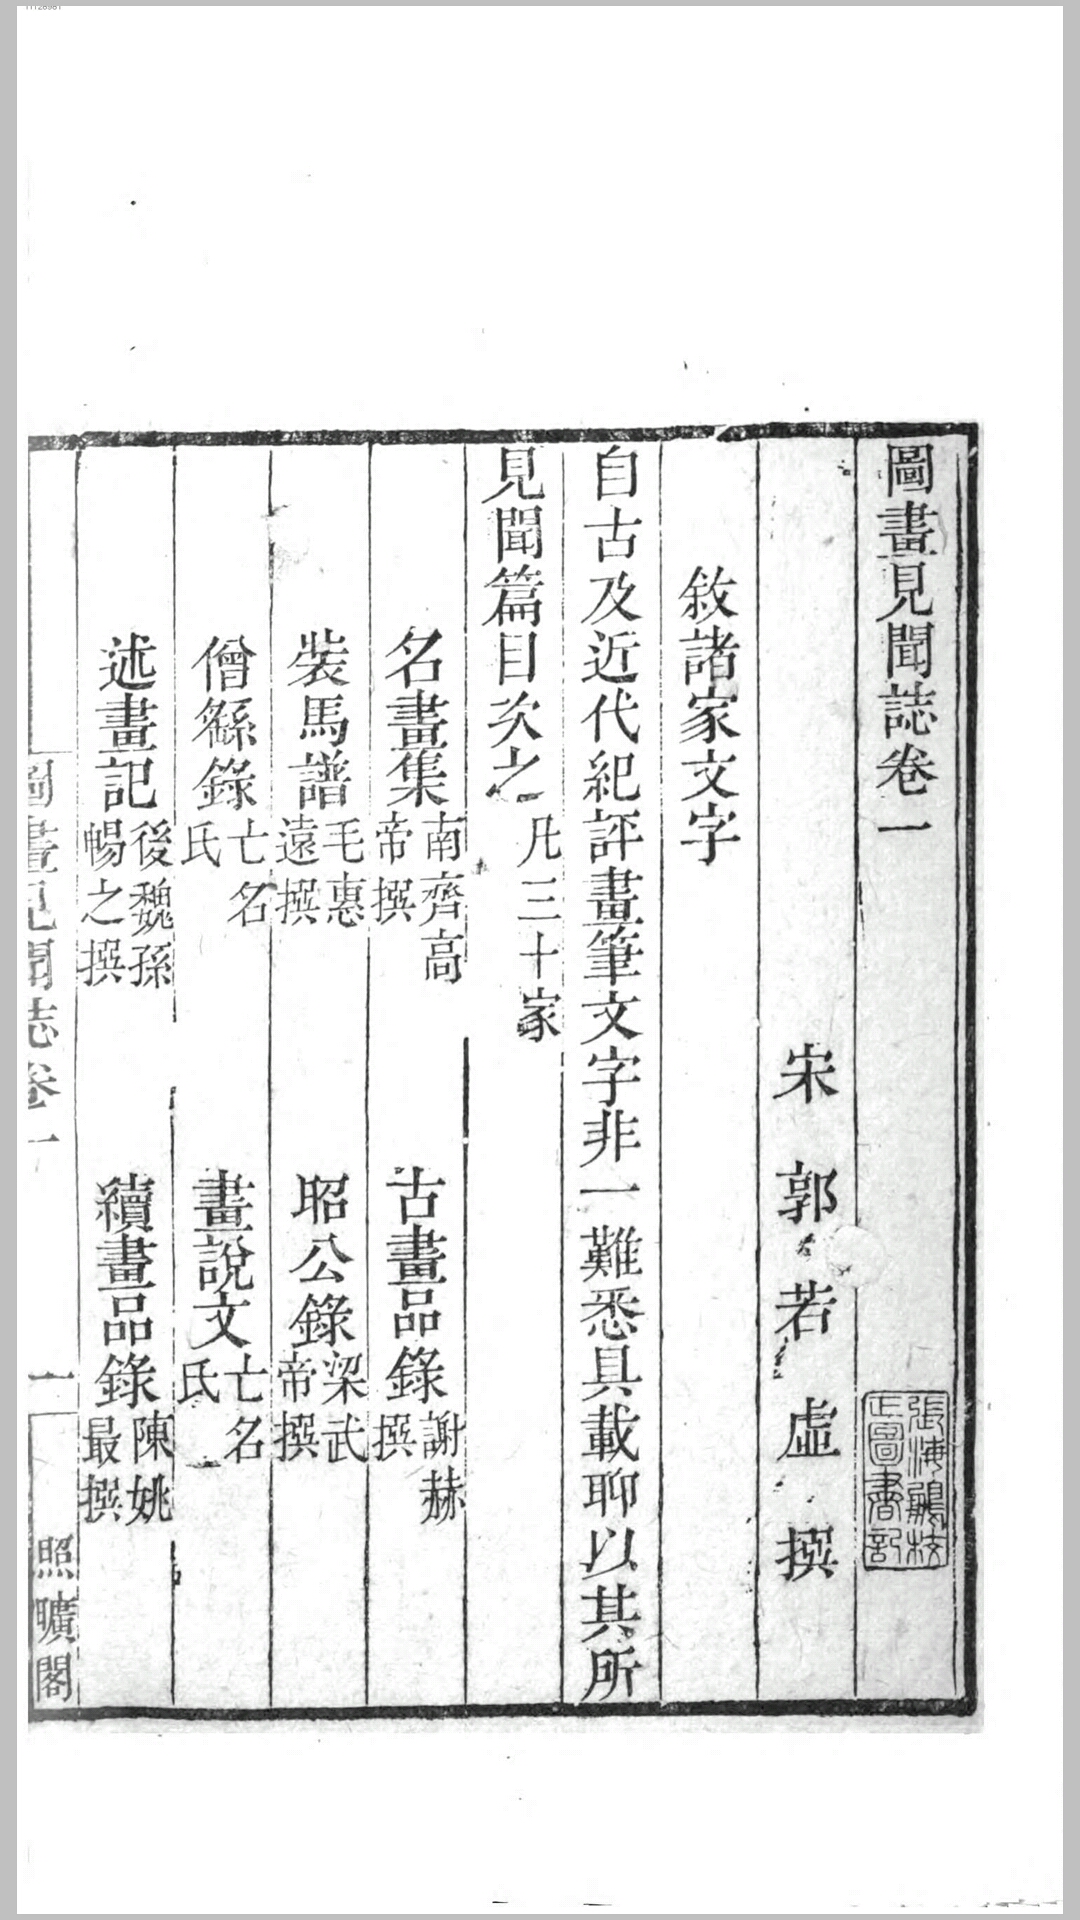 圖畫見聞誌卷一
宋 郭 若 虛 撰
張海鵬校
正圖書記
敘諸家文字
自古及近代紀評畫筆文字非一難悉具載聊以其所
見聞篇目次之 凡三十家
名畫集 南齊高帝撰 古畫品錄 謝赫撰
裝馬譜 毛惠遠撰 昭公錄 梁武帝撰
僧繇錄 亡名氏 畫說文 亡名氏
述畫記 後魏孫暢之撰 續畫品錄 陳姚最撰
圖畫見聞誌卷一 一 照曠閣